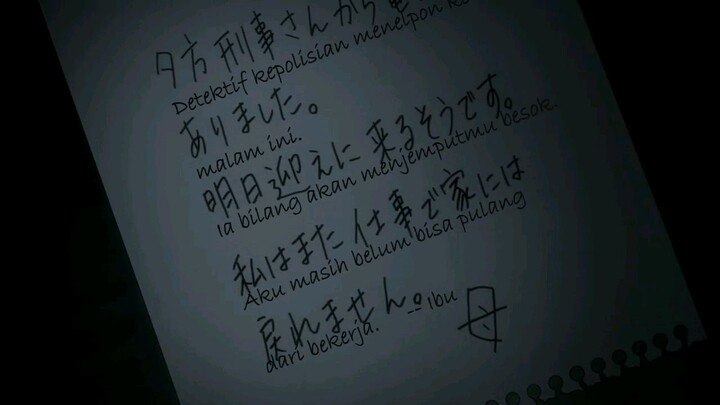 夕方刑事さんから
Detektif kepolisian menelpon
ありました。
malam ini.
明日迎えに来るそうです。
Ia bilang akan menjemputmu besok.
私はまた仕事で家には
Aku masih belum bisa pulang
戻れません。
dari bekerja. -- Ibu
母